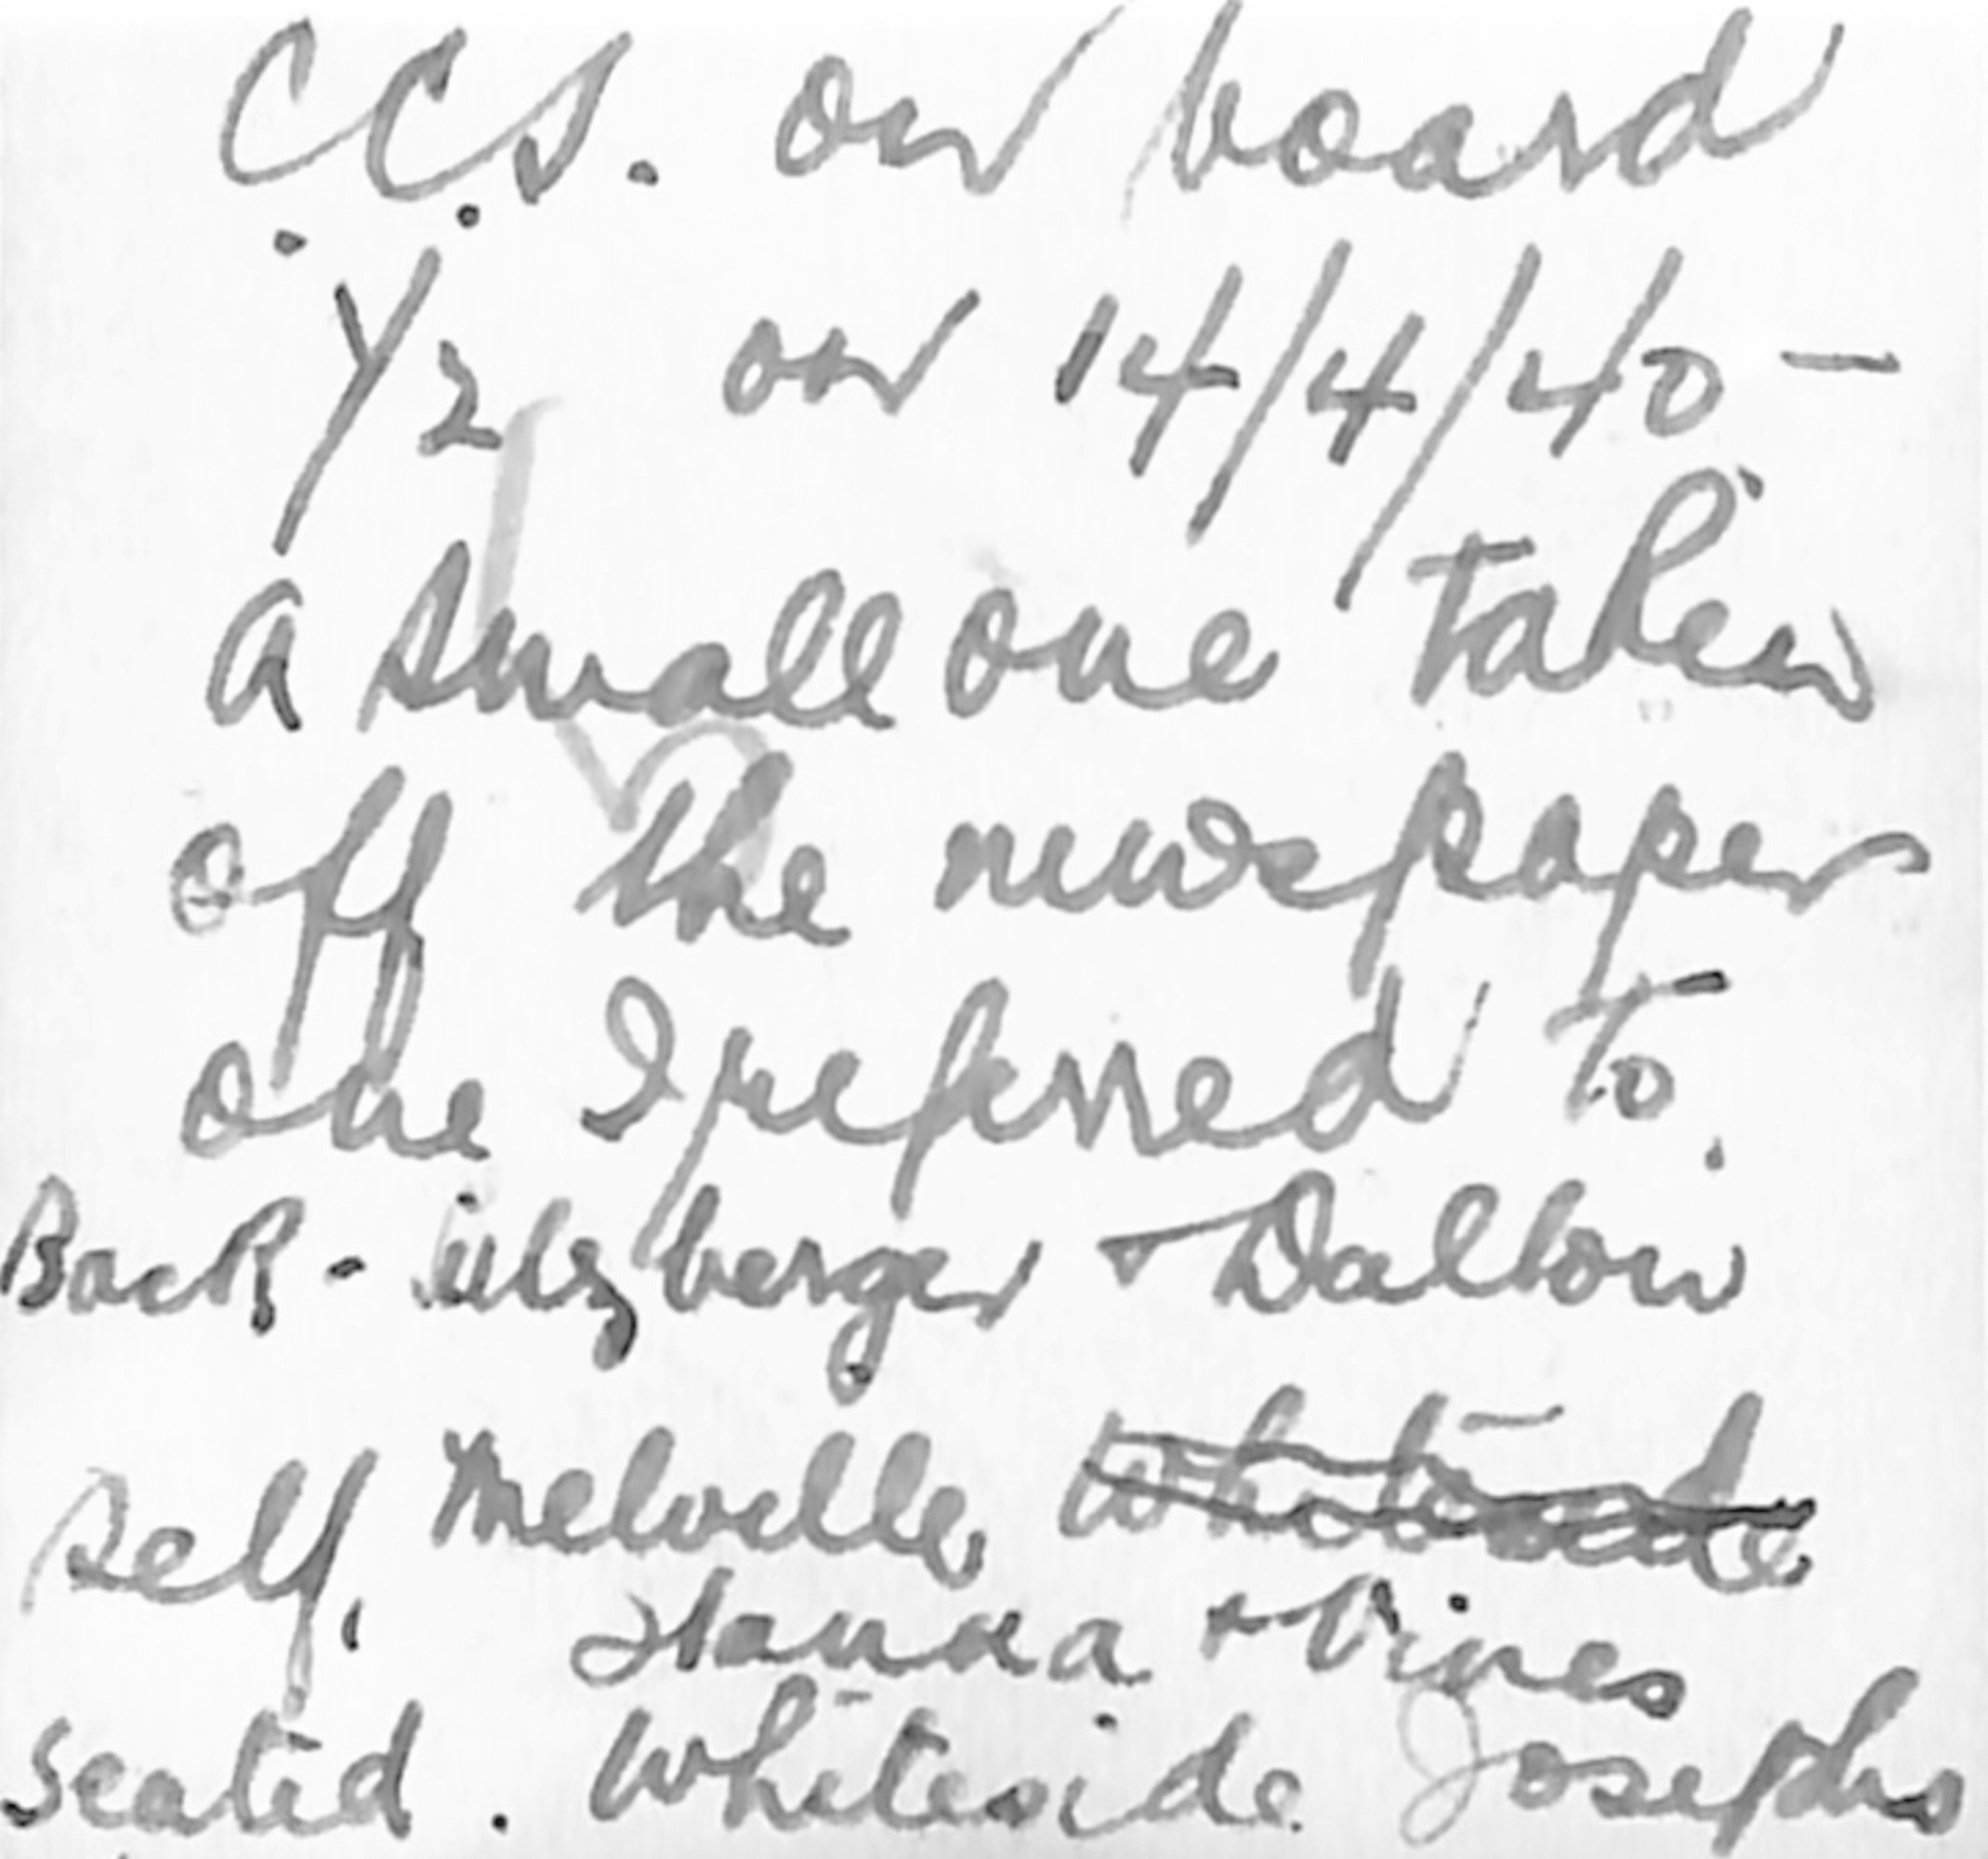 C.C.S. on board
Y2 on 14/4/40 —
a small one taken
off the newspaper
one I referred to.
Back - ülzberger + Dalton
self, Melville ~~Whiteside~~
Hanna + Vines
seated. Whiteside Josephs